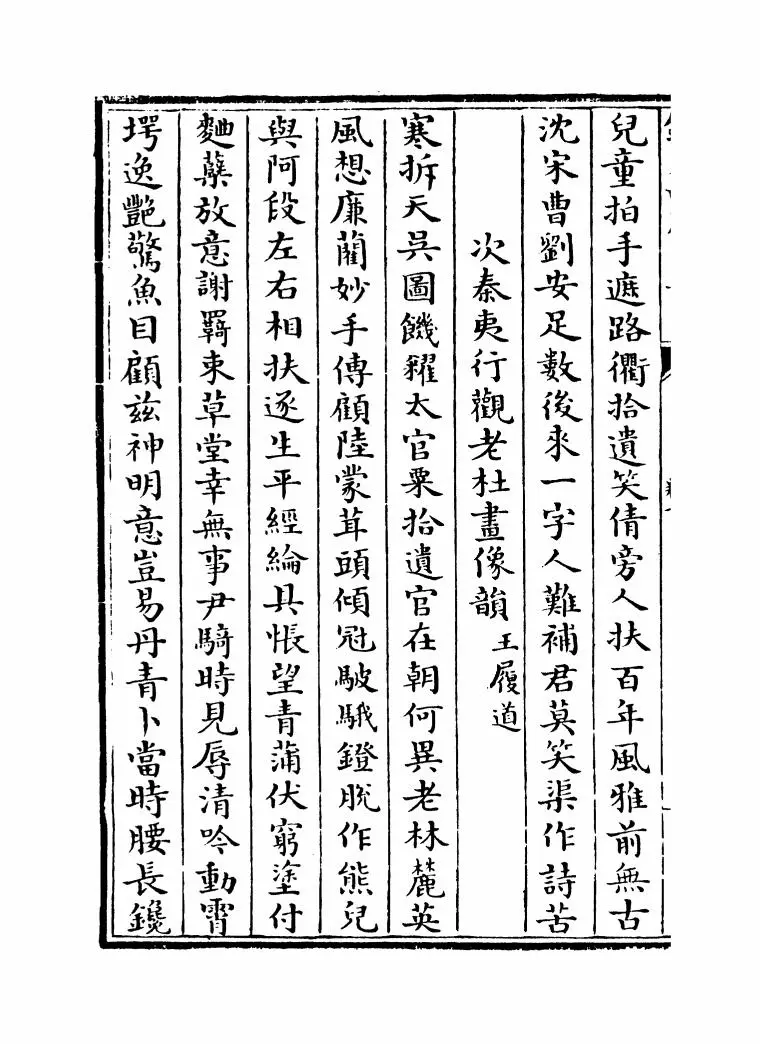 兒童拍手遮路衢拾遺笑倩旁人扶百年風雅前無古
沈宋曹劉安足數後來一字人難補君莫笑渠作詩苦
次秦夷行觀老杜畫像韻王履道
寒拆天吳圖饑糴太官粟拾遺官在朝何異老林麓英
風想廉藺妙手傳顧陸蒙茸頭傾冠駊騀鐙脫作熊兒
與阿段左右相扶逐生平經綸具悵望青蒲伏窮塗付
麯蘖放意謝羇束草堂幸無事尹騎時見辱清吟動霄
堮逸艷驚魚目顧兹神明意豈易丹青卜當時腰長鑱